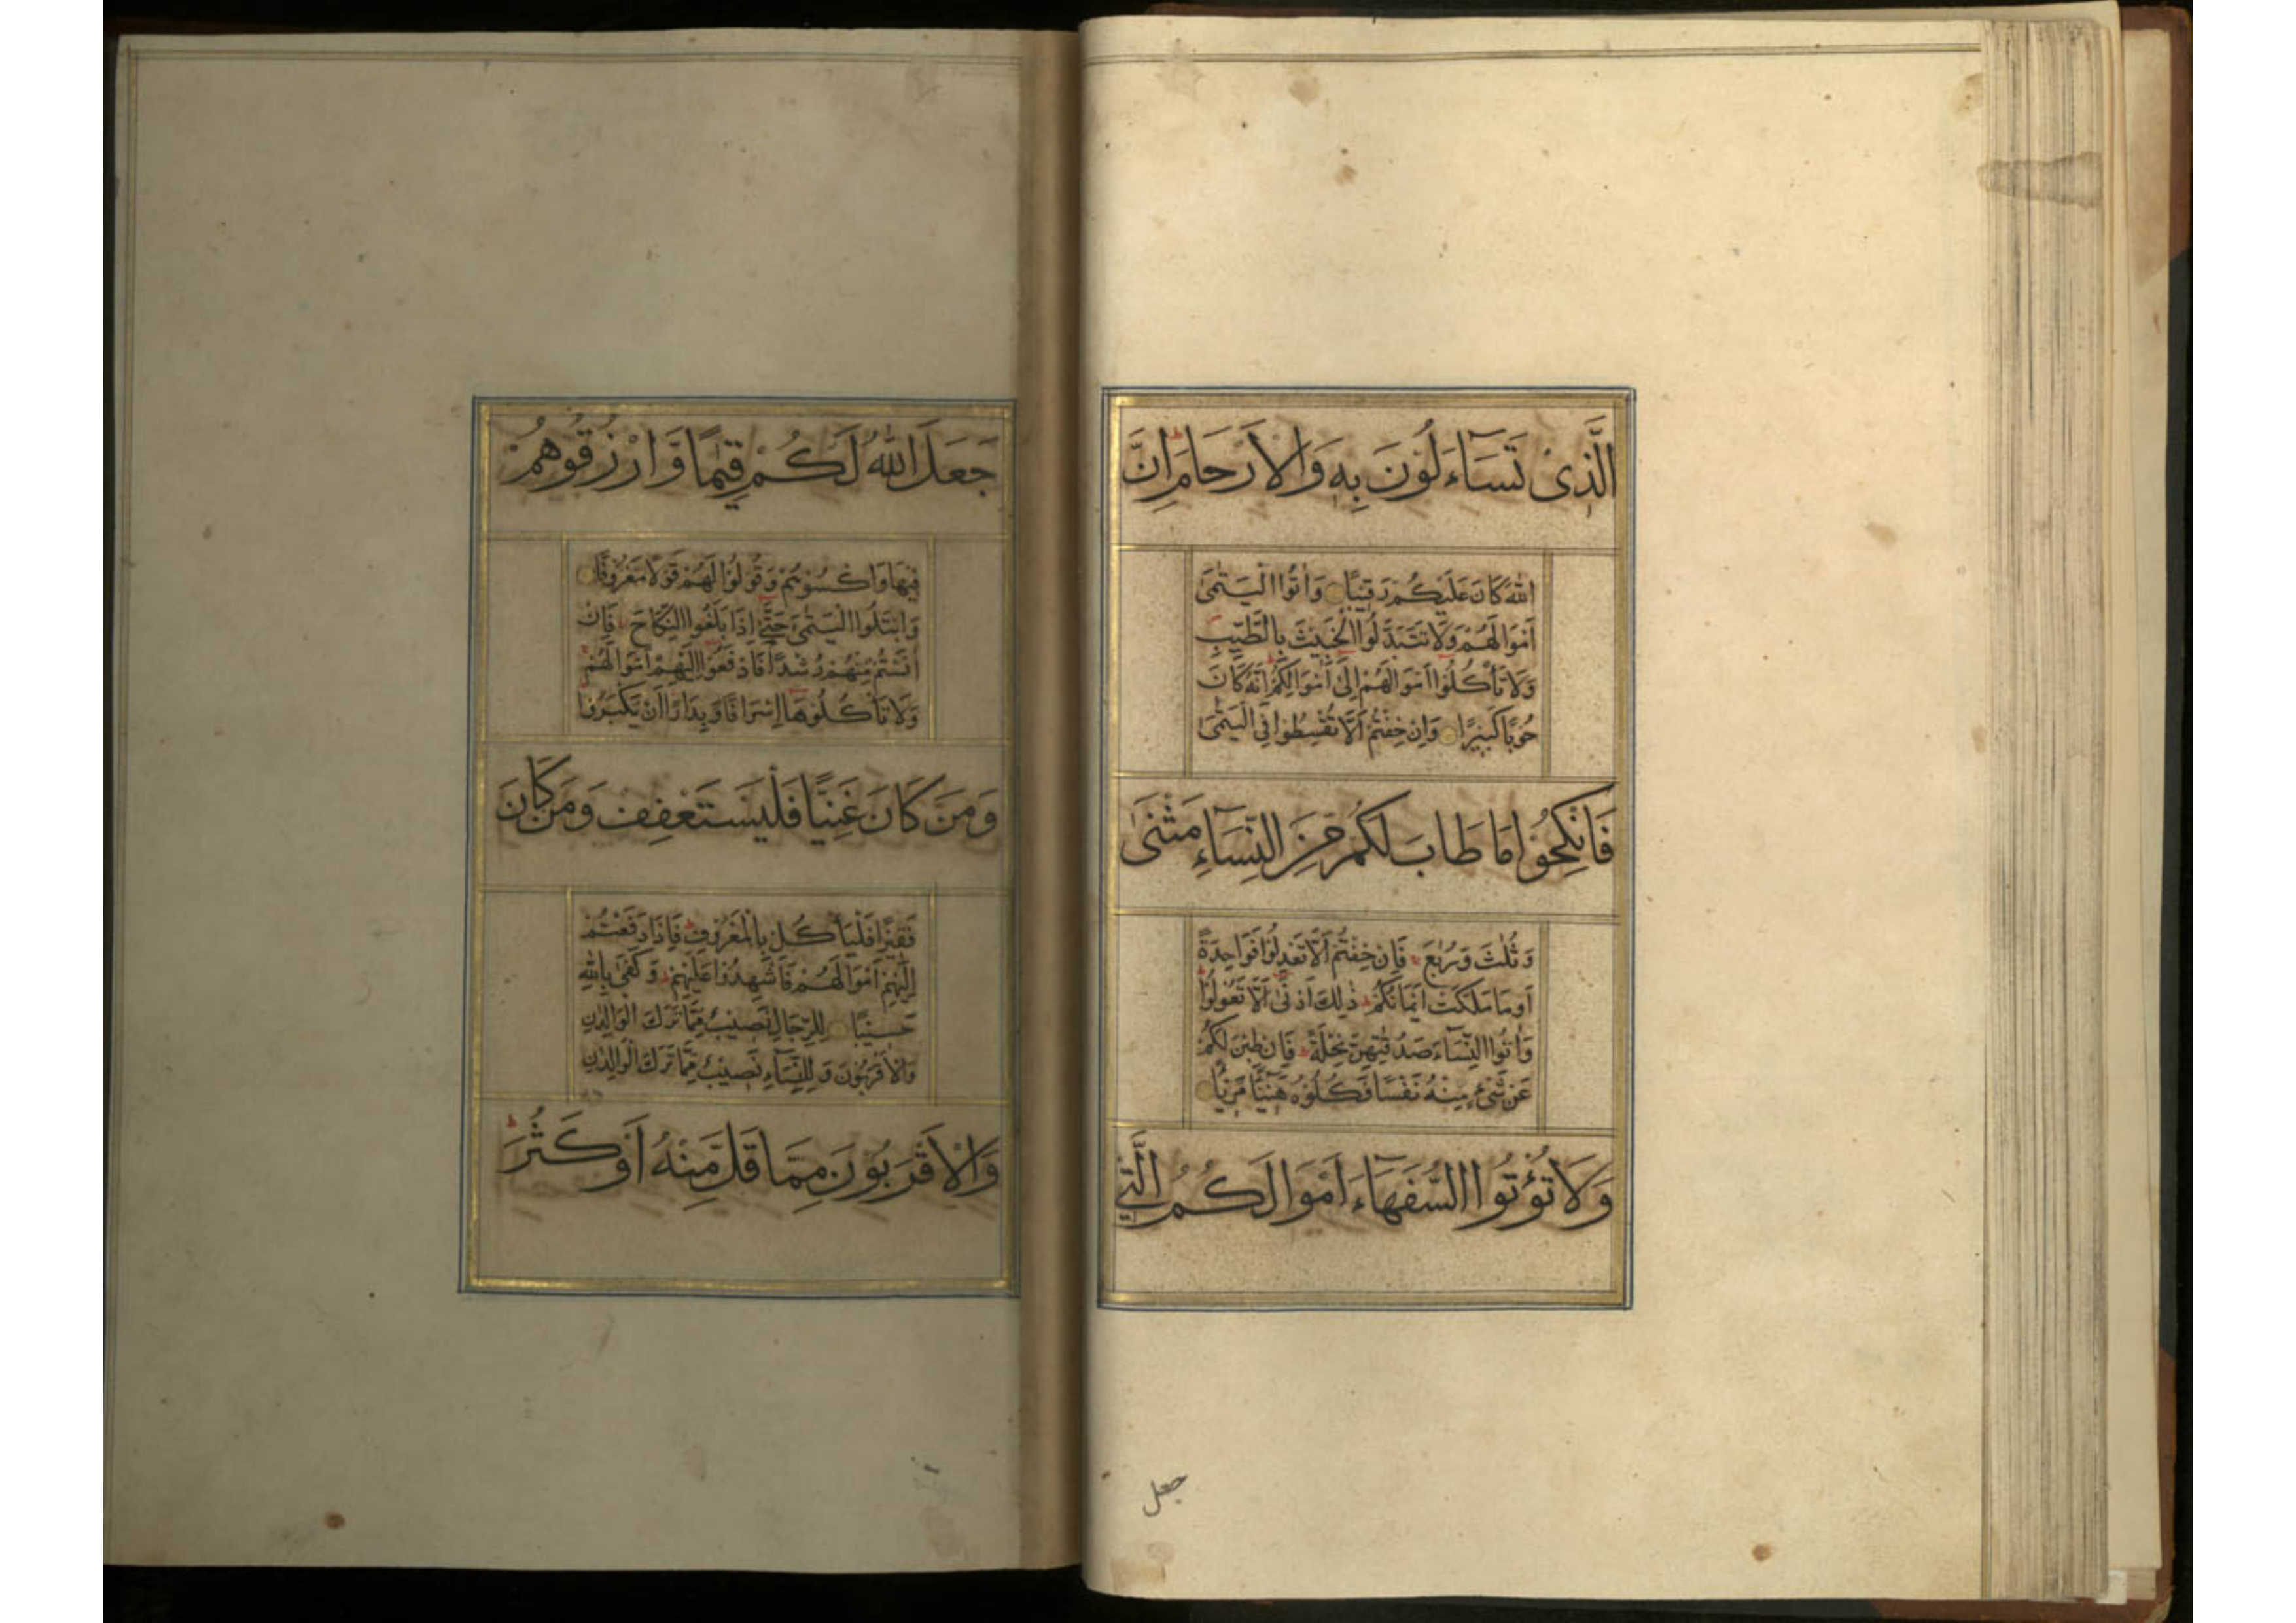 الَّذِىْ تَسَآءَلُوْنَ بِهٖ وَالْاَرْحَامَ ط اِنَّ
اللّٰهَ كَانَ عَلَيْكُمْ رَقِيْبًا وَاٰتُوا الْيَتٰمٰى
اَمْوَالَهُمْ وَلَا تَتَبَدَّلُوا الْخَبِيْثَ بِالطَّيِّبِ
وَلَا تَأْكُلُوْا اَمْوَالَهُمْ اِلٰى اَمْوَالِكُمْ ط اِنَّهٗ كَانَ
حُوْبًا كَبِيْرًا وَاِنْ خِفْتُمْ اَلَّا تُقْسِطُوْا فِى الْيَتٰمٰى
فَانْكِحُوْا مَا طَابَ لَكُمْ مِّنَ النِّسَآءِ مَثْنٰى
وَثُلٰثَ وَرُبٰعَ فَاِنْ خِفْتُمْ اَلَّا تَعْدِلُوْا فَوَاحِدَةً
اَوْ مَا مَلَكَتْ اَيْمَانُكُمْ ط ذٰلِكَ اَدْنٰى اَلَّا تَعُوْلُوْا
وَاٰتُوا النِّسَآءَ صَدُقٰتِهِنَّ نِحْلَةً ط فَاِنْ طِبْنَ لَكُمْ
عَنْ شَىْءٍ مِنْهُ نَفْسًا فَكُلُوْهُ هَنِيْئًا مَرِيْئًا
وَلَا تُؤْتُوا السُّفَهَآءَ اَمْوَالَكُمُ الَّتِىْ
جعل
جَعَلَ اللّٰهُ لَكُمْ قِيٰمًا وَّارْزُقُوْهُمْ
فِيْهَا وَاكْسُوْهُمْ وَقُوْلُوْا لَهُمْ قَوْلًا مَعْرُوْفًا
وَابْتَلُوا الْيَتٰمٰى حَتّٰى اِذَا بَلَغُوا النِّكَاحَ فَاِنْ
اٰنَسْتُمْ مِنْهُمْ رُشْدًا فَادْفَعُوْا اِلَيْهِمْ اَمْوَالَهُمْ
وَلَا تَأْكُلُوْهَا اِسْرَافًا وَبِدَارًا اَنْ يَكْبَرُوْا
وَمَنْ كَانَ غَنِيًّا فَلْيَسْتَعْفِفْ وَمَنْ كَانَ
فَقِيْرًا فَلْيَأْكُلْ بِالْمَعْرُوْفِ ط فَاِذَا دَفَعْتُمْ
اِلَيْهِمْ اَمْوَالَهُمْ فَاَشْهِدُوْا عَلَيْهِمْ ط وَكَفٰى بِاللّٰهِ
حَسِيْبًا لِلرِّجَالِ نَصِيْبٌ مِمَّا تَرَكَ الْوَالِدٰنِ
وَالْاَقْرَبُوْنَ وَلِلنِّسَآءِ نَصِيْبٌ مِمَّا تَرَكَ الْوَالِدٰنِ
وَالْاَقْرَبُوْنَ مِمَّا قَلَّ مِنْهُ اَوْ كَثُرَ ط